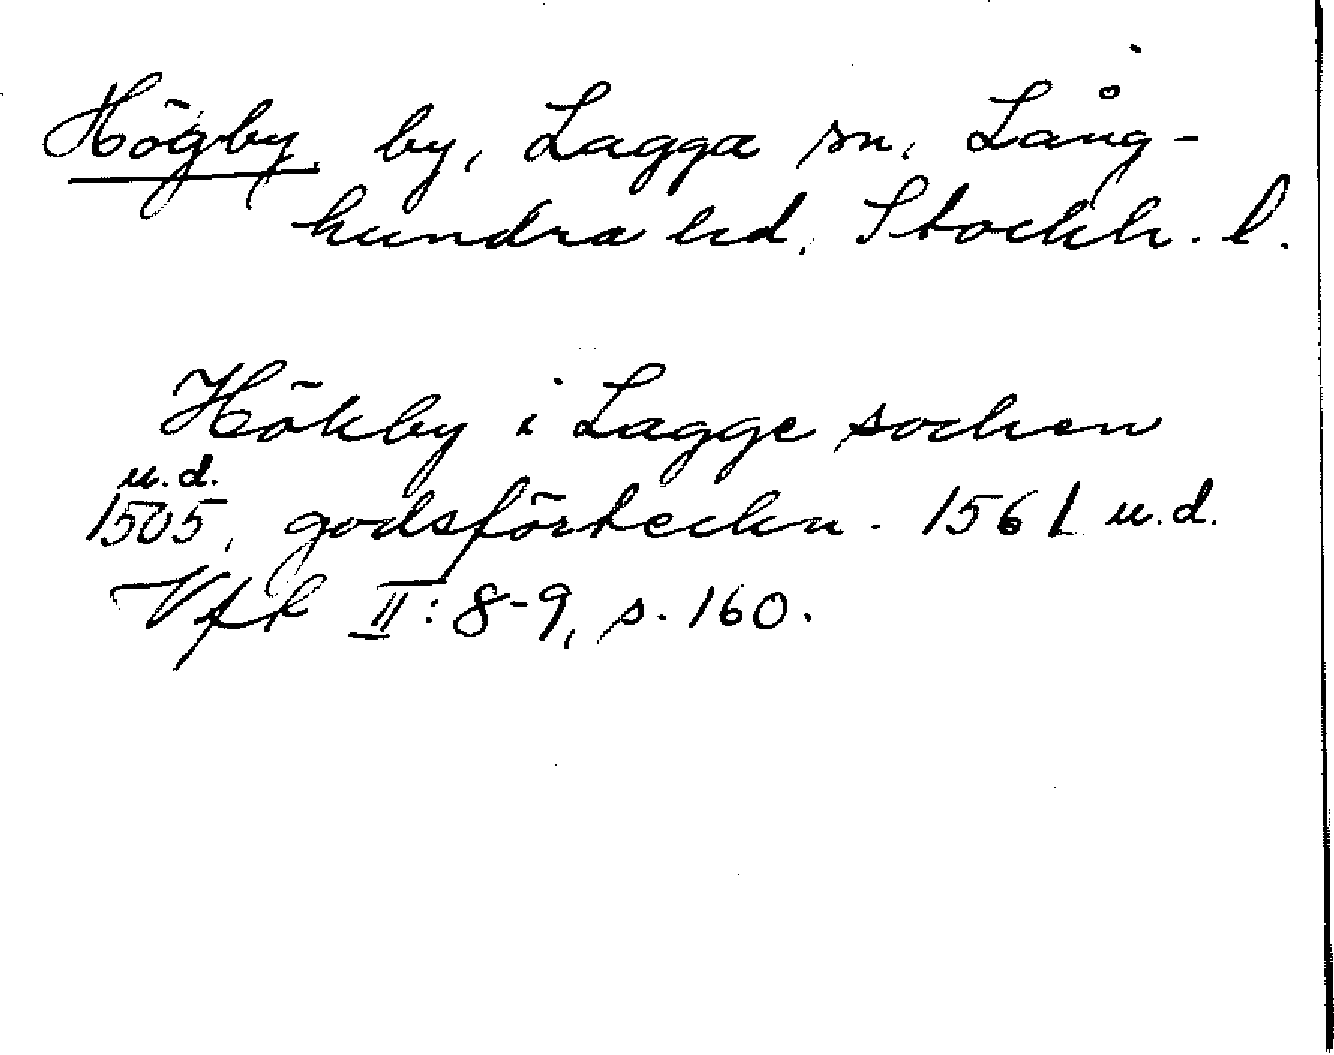 Högby, by, Lagga sn, Lång-
hundra hd, Stockh. l.
Hökby i Lagge socken
u.d.
1505, godsförteckn. 1561 u.d.
Vfk II: 8-9, s. 160.